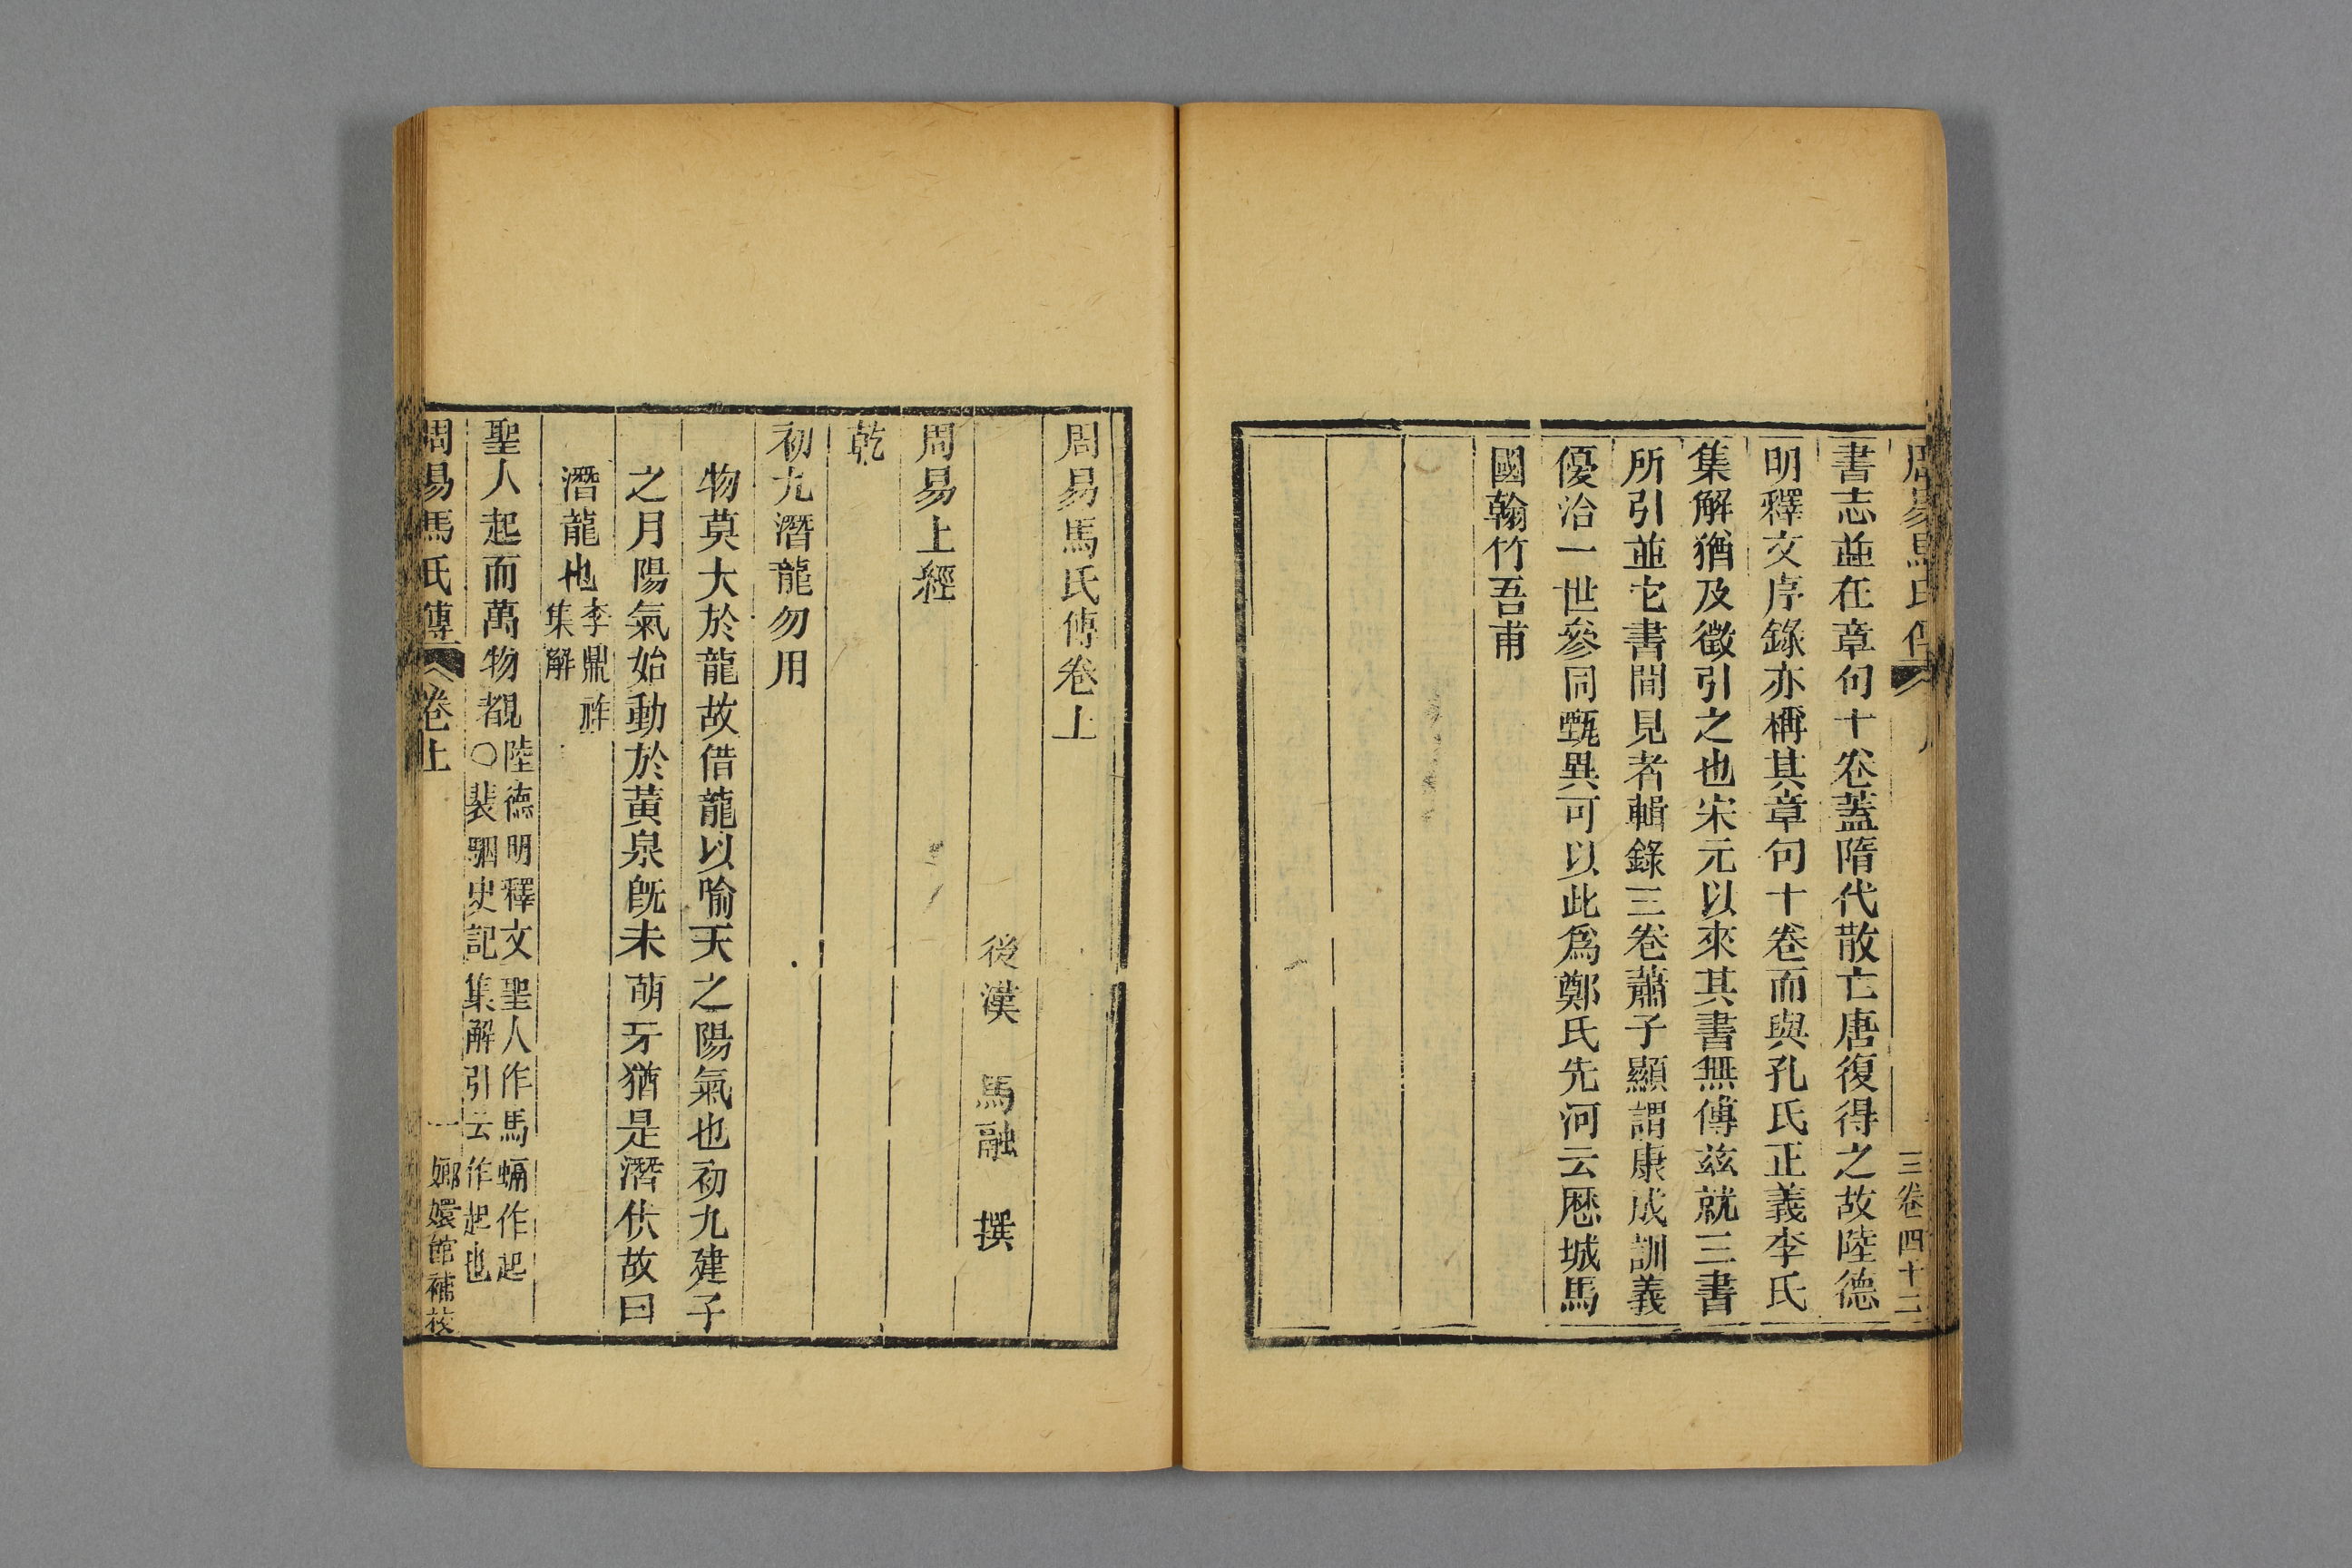 周易馬氏傳
三卷四十二
書志並在章句十卷蓋隋代散亡唐復得之故陸德
明釋文序錄亦稱其章句十卷而與孔氏正義李氏
集解猶及徵引之也宋元以來其書無傳茲就三書
所引並它書間見者輯錄三卷蕭子顯謂康成訓義
優洽一世參同甄異可以此為鄭氏先河云歷城馬
國翰竹吾甫
周易馬氏傳卷上
後漢 馬融 撰
周易上經
乾
初九潛龍勿用
物莫大於龍故借龍以喻天之陽氣也初九建子
之月陽氣始動於黃泉旣未萌牙猶是潛伏故曰
潛龍也李鼎祚集解
聖人起而萬物覩陸德明釋文聖人作馬融作起○裴駰史記集解引云作起也
周易馬氏傳 卷上 一 嫏嬛館補校